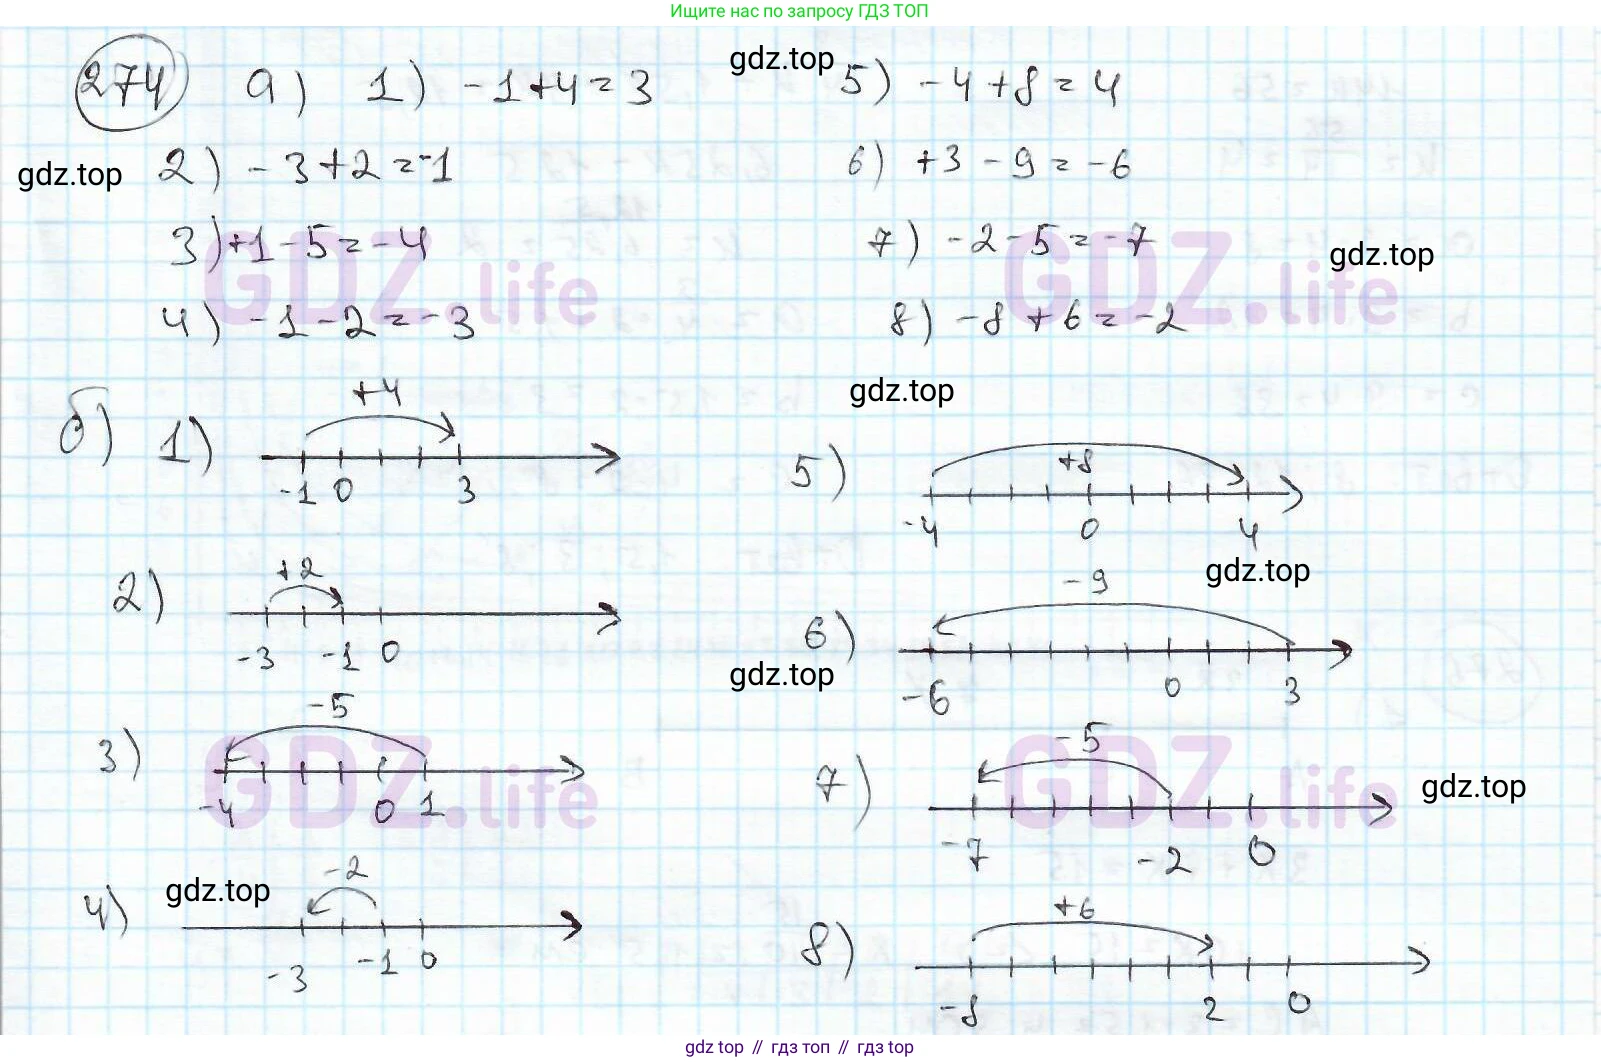 Ищите нас по запросу ГДЗ ТОП
274 а) 1) -1+4=3
5) -4+8=4
gdz.top
gdz.top
2) -3+2=-1
6) +3-9=-6
3) +1-5=-4
7) -2-5=-7
gdz.top
GDZ.life
GDZ.life
4) -1-2=-3
8) -8+6=-2
gdz.top
б) 1)
+4
-1 0 3
5)
+8
-4 0 4
gdz.top
2)
+2
-3 -1 0
6)
-9
-6 0 3
gdz.top
3)
-5
-4 0 1
GDZ.life
7)
-5
-7 -2 0
GDZ.life
gdz.top
4)
gdz.top
-2
-3 -1 0
8)
+6
-8 2 0
gdz top // гдз топ // gdz top